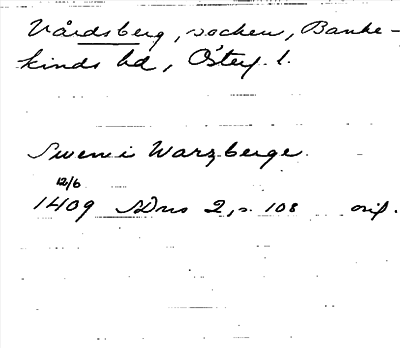 Vårdsberg, socken, Banke-
kinds hd, Österg. l.
Swen i Warzberge.
12/6
1409 SDns 2, s. 108 orig.